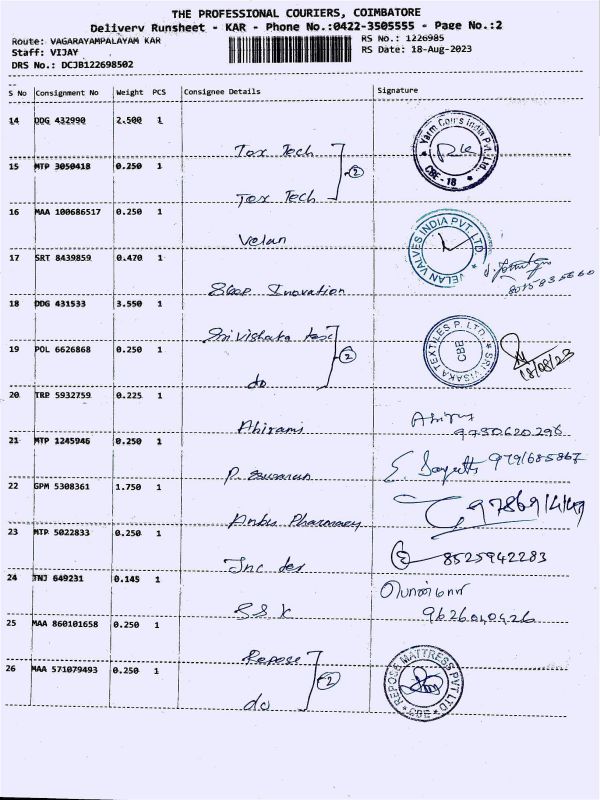 THE PROFESSIONAL COURIERS, COIMBATORE
Delivery Runsheet - KAR - Phone No.:0422-3505555 - Page No.:2
Route: VAGARAYAMPALAYAM KAR
RS No.: 1226985
Staff: VIJAY
RS Date: 18-Aug-2023
DRS No.: DCJB122698502
S No Consignment No Weight PCS Consignee Details Signature
14 DDG 432990 2.500 1
Tex Tech
Yarn Cons India Pvt. Ltd.
CBE - 18
15 MTP 3050418 0.250 1
2
Tex Tech
16 MAA 100686517 0.250 1
Velan
VELAN VALVES INDIA PVT. LTD
17 SRT 8439859 0.470 1
Inovation
18 DDG 431533 3.550 1
Sri Vishaka
SRI VISAKA TEXTILES P. LTD
CBE
18/08/23
19 POL 6626868 0.250 1
2
do
20 TRP 5932759 0.225 1
Abirami
9750620296
21 MTP 1245946 0.250 1
P.
9791685867
22 GPM 5308361 1.750 1
Anbu Pharmacy
23 MTP 5022833 0.250 1
8525942283
24 TNJ 649231 0.145 1
SSK
25 MAA 860101658 0.250 1
Repose
26 MAA 571079493 0.250 1
2
do
REPOSE MATTRESS PVT LTD
CBE